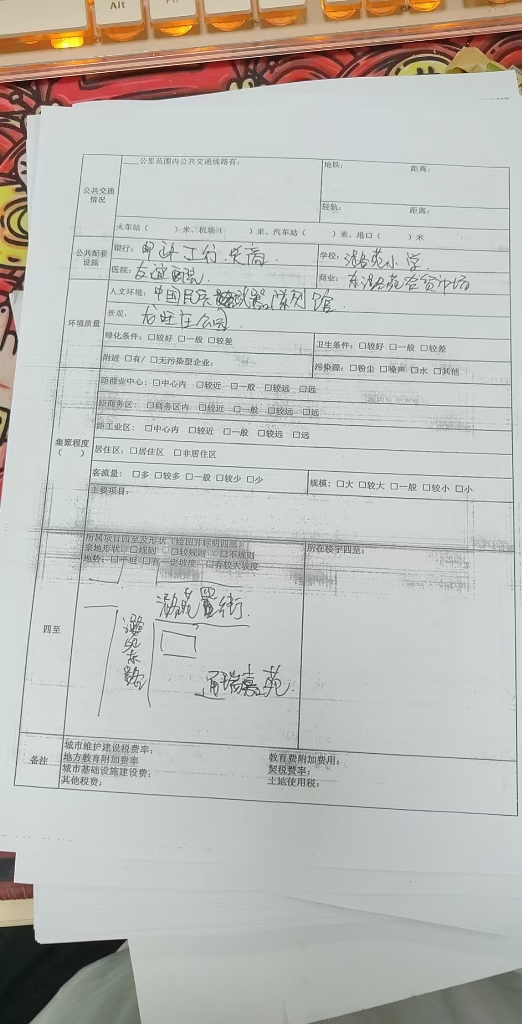 Alt
Fn
公共交通情况
___公里范围内公共交通线路有:
地铁: 距离:
轻轨: 距离:
火车站( )米、机场( )米、汽车站( )米、港口( )米
公共配套设施
银行: 邮政 工行 农商
学校: 潞苑小学
医院: 友谊医院
商业: 东潞苑农贸市场
环境质量
人文环境: 中国民兵武器陈列馆
景观: 古旺庄公园
绿化条件: □较好 □一般 □较差
卫生条件: □较好 □一般 □较差
附近 □有/ □无污染型企业:
污染源: □粉尘 □噪声 □水 □其他
集聚程度( )
距商业中心: □中心内 □较近 □一般 □较远 □远
距商务区: □商务区内 □较近 □一般 □较远 □远
距工业区: □中心内 □较近 □一般 □较远 □远
居住区: □居住区 □非居住区
客流量: □多 □较多 □一般 □较少 □少
规模: □大 □较大 □一般 □较小 □小
主要项目:
四至
所属项目四至及形状(绘图并标明四至)
宗地形状: □规则 □较规则 □不规则
地势: □平坦 □有一定坡度 □有较大坡度
所在楼宇四至:
潞苑四街
潞苑东路
通瑞嘉苑
备注
城市维护建设税费率:
地方教育附加费率
城市基础设施建设费:
其他税费:
教育费附加费用:
契税费率:
土地使用税: